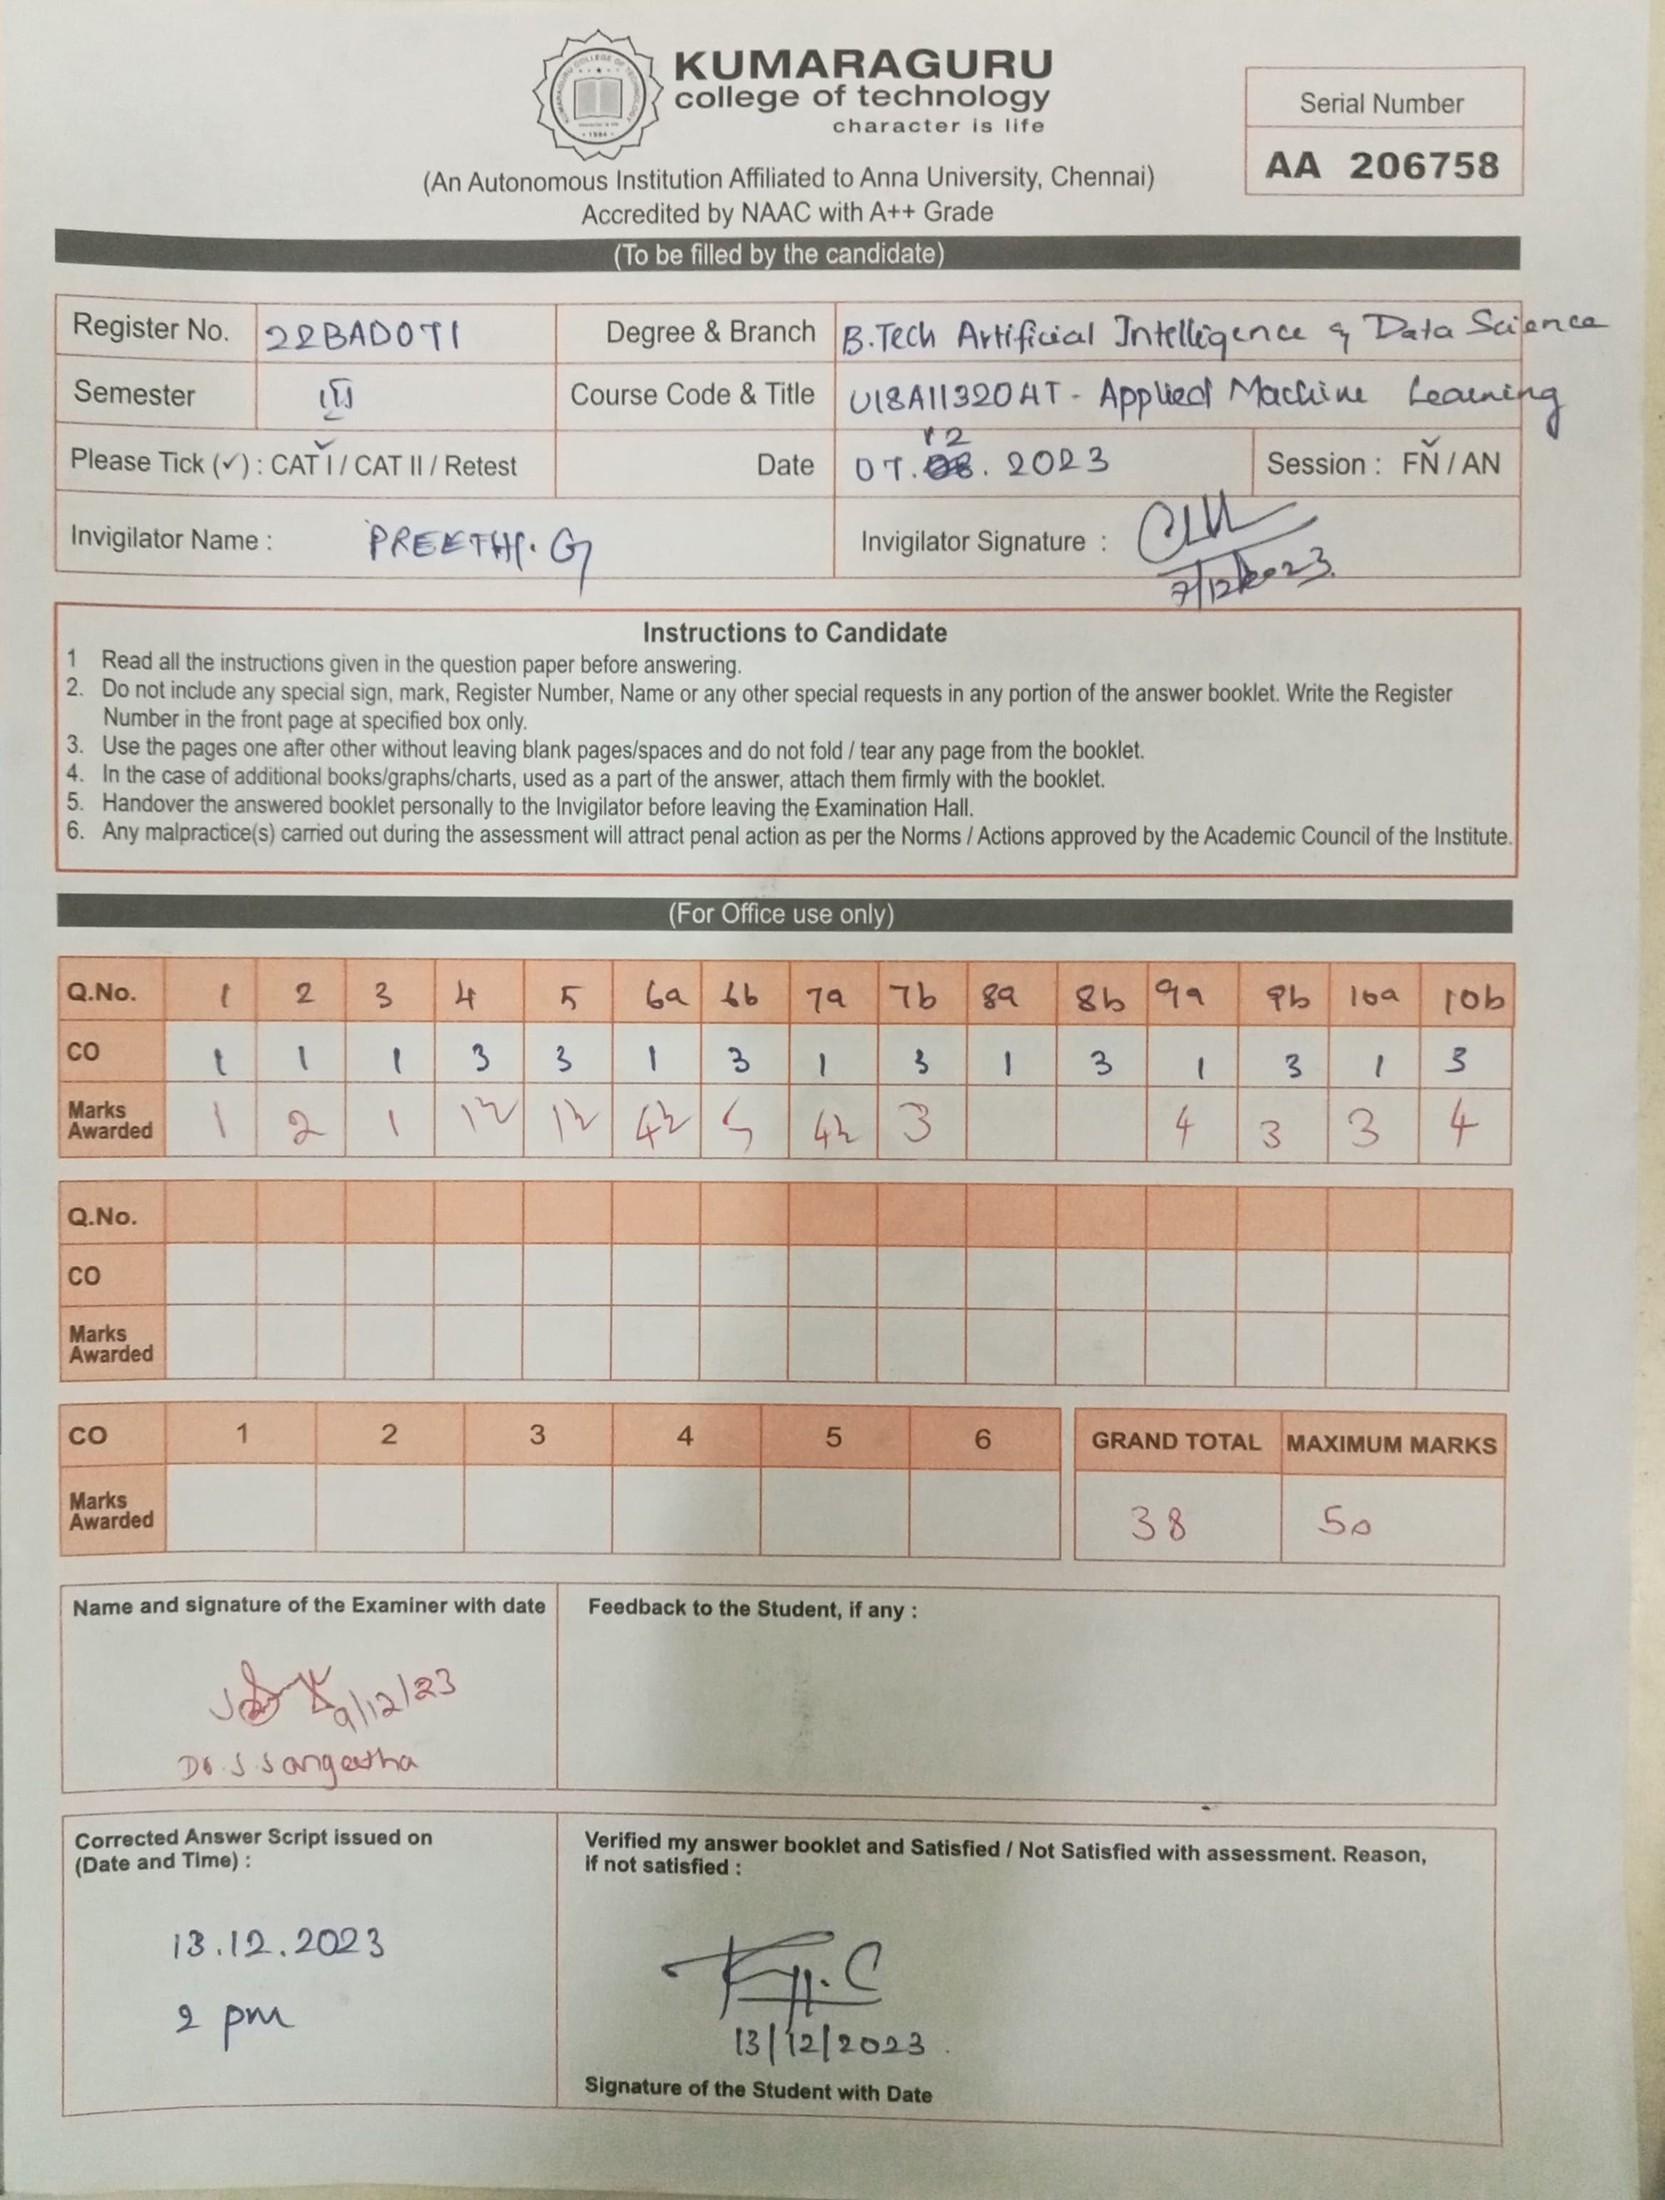 KUMARAGURU
college of technology
character is life
KUMARAGURU COLLEGE OF TECHNOLOGY
1984
Serial Number
AA 206758
(An Autonomous Institution Affiliated to Anna University, Chennai)
Accredited by NAAC with A++ Grade
(To be filled by the candidate)
Register No. 22BAD071 Degree & Branch B.Tech Artificial Intelligence & Data Science
Semester III Course Code & Title U18AII3204T - Applied Machine Learning
Please Tick (✓) : CAT I / CAT II / Retest Date 07.12.2023 Session : FN / AN
Invigilator Name : PREETHI. G Invigilator Signature :
7/12/2023
Instructions to Candidate
1 Read all the instructions given in the question paper before answering.
2. Do not include any special sign, mark, Register Number, Name or any other special requests in any portion of the answer booklet. Write the Register
Number in the front page at specified box only.
3. Use the pages one after other without leaving blank pages/spaces and do not fold / tear any page from the booklet.
4. In the case of additional books/graphs/charts, used as a part of the answer, attach them firmly with the booklet.
5. Handover the answered booklet personally to the Invigilator before leaving the Examination Hall.
6. Any malpractice(s) carried out during the assessment will attract penal action as per the Norms / Actions approved by the Academic Council of the Institute.
(For Office use only)
Q.No. 1 2 3 4 5 6a 6b 7a 7b 8a 8b 9a 9b 10a 10b
CO 1 1 1 3 3 1 3 1 3 1 3 1 3 1 3
Marks
Awarded 1 2 1 1½ 1½ 4½ 5 4½ 3 4 3 3 4
Q.No.
CO
Marks
Awarded
CO 1 2 3 4 5 6 GRAND TOTAL MAXIMUM MARKS
Marks
Awarded 38 50
Name and signature of the Examiner with date Feedback to the Student, if any :
9/12/23
Dr. J Sangeetha
Corrected Answer Script issued on
(Date and Time) :
13.12.2023
2 pm
Verified my answer booklet and Satisfied / Not Satisfied with assessment. Reason,
if not satisfied :
13/12/2023
Signature of the Student with Date